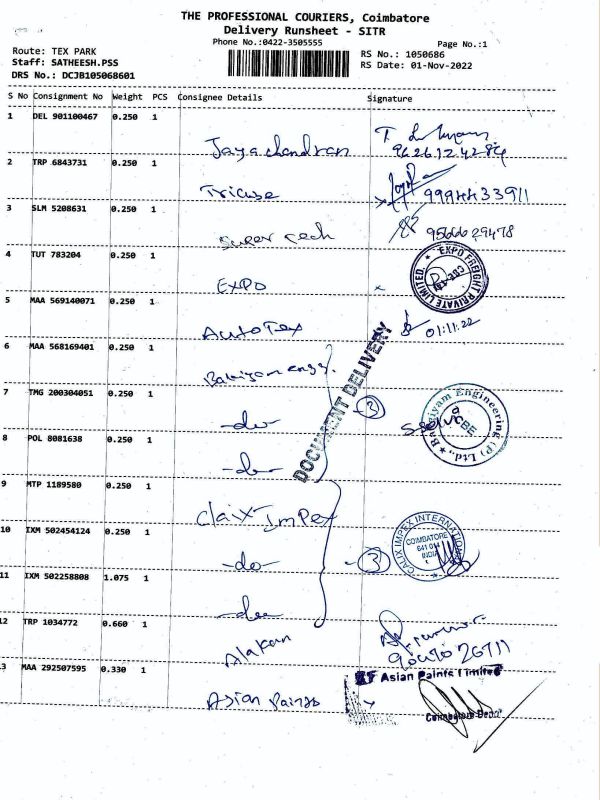 THE PROFESSIONAL COURIERS, Coimbatore
Delivery Runsheet - SITR
Phone No.:0422-3505555
Page No.:1
Route: TEX PARK
RS No.: 1050686
Staff: SATHEESH.PSS
RS Date: 01-Nov-2022
DRS No.: DCJB105068601
S No Consignment No Weight PCS Consignee Details Signature
1 DEL 901100467 0.250 1
Jayachandran 9626124284
2 TRP 6843731 0.250 1
9994433911
3 SLM 5208631 0.250 1
Super tech 9566629478
4 TUT 783204 0.250 1
EXPO EXPO FREIGHT PRIVATE LIMITED.
5 MAA 569140071 0.250 1
AutoTex 01.11.22
6 MAA 568169401 0.250 1
DOCUMENT DELIVERY
7 TMG 200304051 0.250 1
-do- 3 Bagiyam Engineering (P) Ltd., CBE
8 POL 8081638 0.250 1
-do-
9 MTP 1189580 0.250 1
Claix Impex
10 IXM 502454124 0.250 1
-do- 3 CALIX IMPEX INTERNATIONAL COIMBATORE 641 014 INDIA
11 IXM 502258808 1.075 1
-do-
12 TRP 1034772 0.660 1
13 MAA 292507595 0.330 1
Asian Paints Asian Paints Limited
Coimbatore Depot